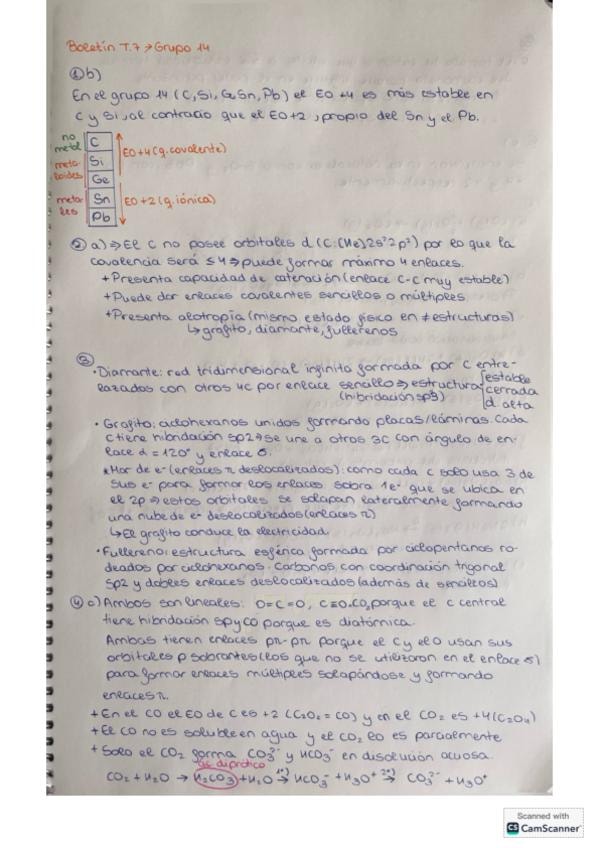 Boletín T.7 → Grupo 14
① b)
En el grupo 14 (C, Si, Ge, Sn, Pb) el EO +4 es más estable en
C y Si, al contrario que el EO+2, propio del Sn y el Pb.
no metal
C
EO+4 (g. covalente)
metaloides
Si
Ge
metales
Sn
EO+2 (g. iónica)
Pb
② a) ⇒ El C no posee orbitales d (C: (He) 2s² 2p²) por lo que la
covalencia será ≤ 4 ⇒ puede formar máximo 4 enlaces.
+ Presenta capacidad de catenación (enlace C-C muy estable)
+ Puede dar enlaces covalentes sencillos o múltiples
+ Presenta alotropía (mismo estado físico en ≠ estructuras)
↳ grafito, diamante, fullerenos
③
· Diamante: red tridimensional infinita formada por C entre-
lazados con otros 4C por enlace sencillo ⇒ estructura
(hibridación sp3)
estable
cerrada
d. alta
· Grafito: ciclohexanos unidos formando placas/láminas. Cada
C tiene hibridación sp2 → se une a otros 3C con ángulo de en-
lace α = 120º y enlace σ.
* Mar de e⁻ (enlaces π deslocalizados): como cada C solo usa 3 de
sus e⁻ para formar los enlaces sobra 1e⁻ que se ubica en
el 2p ⇒ estos orbitales se solapan lateralmente formando
una nube de e⁻ deslocalizados (enlaces π)
↳ El grafito conduce la electricidad.
· Fullereno: estructura esférica formada por ciclopentanos ro-
deados por ciclohexanos. Carbonos con coordinación trigonal
sp2 y dobles enlaces deslocalizados (además de sencillos)
④ c) Ambos son lineales: O=C=O, C≡O. CO₂ porque el C central
tiene hibridación sp y CO porque es diatómica.
Ambas tienen enlaces pπ-pπ porque el C y el O usan sus
orbitales p sobrantes (los que no se utilizaron en el enlace σ)
para formar enlaces múltiples solapándose y formando
enlaces π.
+ En el CO el EO de C es +2 (C₂O₂ = CO) y en el CO₂ es +4 (C₂O₄)
+ El CO no es soluble en agua y el CO₂ lo es parcialmente
+ Solo el CO₂ forma CO₃²⁻ y HCO₃⁻ en disolución acuosa.
ác. diprótico
CO₂ + H₂O → H₂CO₃ + H₂O →(1º) HCO₃⁻ + H₃O⁺ →(2º) CO₃²⁻ + H₃O⁺
Scanned with
CS CamScanner